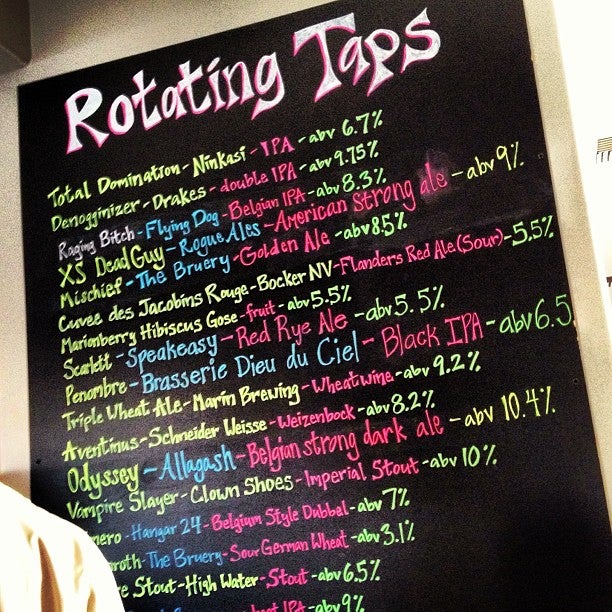 Rotating Taps
Total Domination - Ninkasi - IPA - abv 6.7%
Denogginizer - Drakes - double IPA - abv 9.75%
Raging Bitch - Flying Dog - Belgian IPA - abv 8.3%
XS Dead Guy - Rogue Ales - American strong ale - abv 9%
Mischief - The Bruery - Golden Ale - abv 8.5%
Cuvee des Jacobins Rouge - Bocker NV - Flanders Red Ale (Sour) - 5.5%
Marionberry Hibiscus Gose - fruit - abv 5.5%
Scarlett - Speakeasy - Red Rye Ale - abv 5.5%
Penombre - Brasserie Dieu du Ciel - Black IPA - abv 6.5
Triple Wheat Ale - Marin Brewing - Wheatwine - abv 9.2%
Aventinus - Schneider Weisse - Weizenbock - abv 8.2%
Odyssey - Allagash - Belgian strong dark ale - abv 10.4%
Vampire Slayer - Clown Shoes - Imperial Stout - abv 10%
Hangar 24 - Belgium Style Dubbel - abv 7%
The Bruery - Sour German Wheat - abv 3.1%
Stout - High Water - Stout - abv 6.5%
IPA - abv 9%